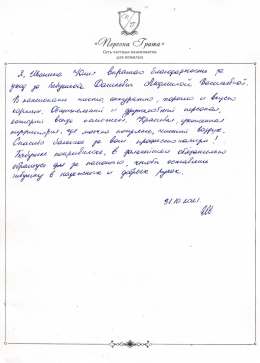 «Персона Грата»
Сеть частных пансионатов
для пожилых
Я, Иванина Юлия выражаю благодарность за
уход за бабушкой Данилевич Людмилой Васильевной.
В пансионате чисто, аккуратно, хорошо и вкусно
кормят. Общительный и дружелюбный персонал,
который всегда поможет. Красивая, ухоженная
территория, где можно погулять, чистый воздух.
Спасибо большое за ваш профессионализм!
Бабушке понравилось, в дальнейшем обязательно
обращусь за помощью, чтобы оставить
бабушку в надежных и добрых руках.
31.10.2021.